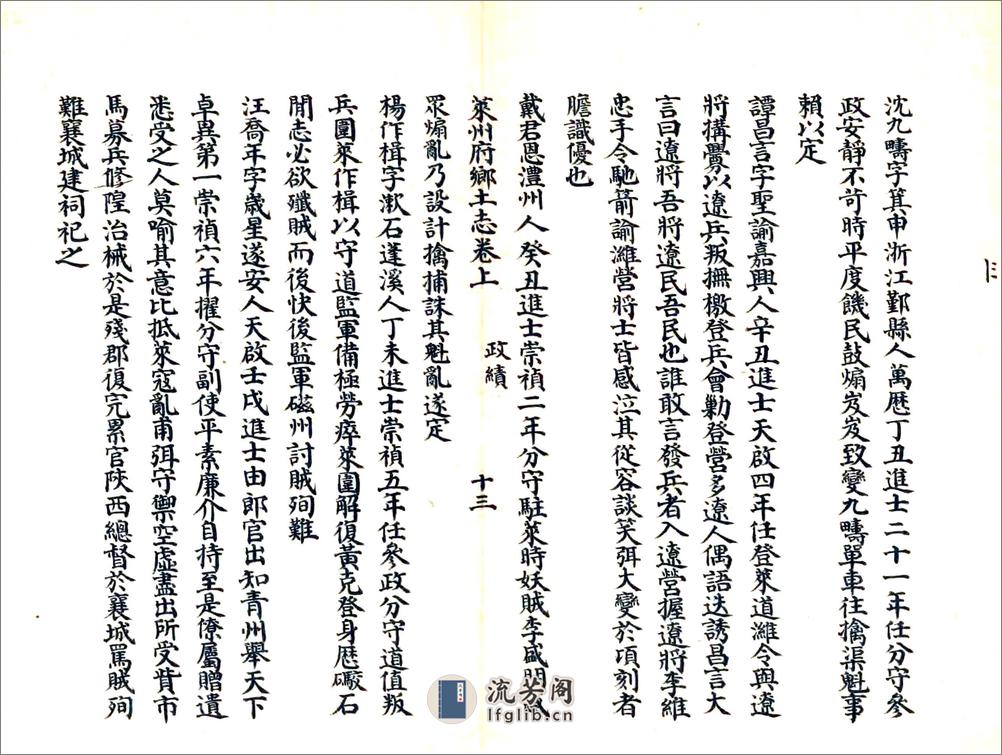 沈九疇字箕申浙江鄞縣人萬曆丁丑進士二十一年任分守參
政安靜不苛時平度饑民鼓煽岌岌致變九疇單車往擒渠魁事
賴以定
譚昌言字聖諭嘉興人辛丑進士天啟四年任登萊道濰令與遼
將搆釁以遼兵叛撫檄登兵會勦登營多遼人偶語迭誘昌言大
言曰遼將吾將遼民吾民也誰敢言發兵者入遼營握遼將李維
忠手令馳箭諭濰營將士皆感泣其從容談笑弭大變於項刻者
膽識優也
戴君恩澧州人癸丑進士崇禎二年分守駐萊時妖賊李盛明
萊州府鄉土志卷上 政績 十三
眾煽亂乃設計擒捕誅其魁亂遂定
楊作楫字漱石蓬溪人丁未進士崇禎五年任參政分守道值叛
兵圍萊作楫以守道監軍備極勞瘁萊圍解復黃克登身歷礮石
閒志必欲殲賊而後快後監軍磁州討賊殉難
汪喬年字歲星遂安人天啟壬戌進士由郎官出知青州舉天下
卓異第一崇禎六年擢分守副使平素廉介自持至是僚屬贈遺
悉受之人莫喻其意比抵萊寇亂甫弭守禦空虛盡出所受貲市
馬募兵修隍治械於是殘郡復完累官陝西總督於襄城罵賊殉
難襄城建祠祀之
流芳阁
lfglib.cn